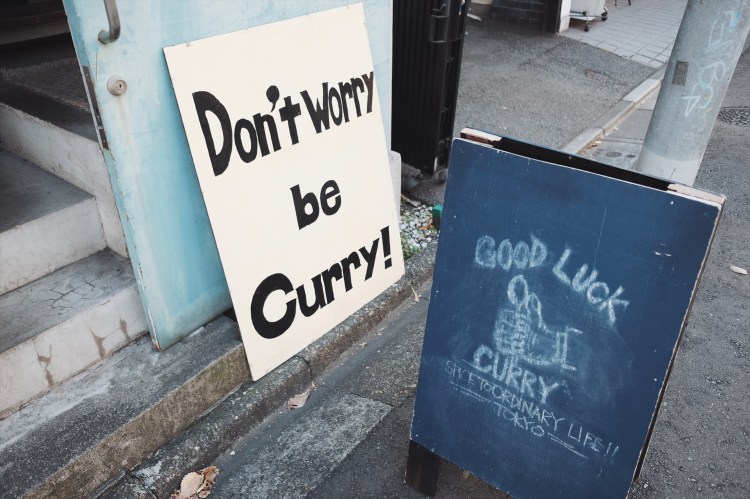 Don't Worry
be
Curry!
GOOD LUCK
CURRY
SPICE TO ORDINARY LIFE!!
TOKYO